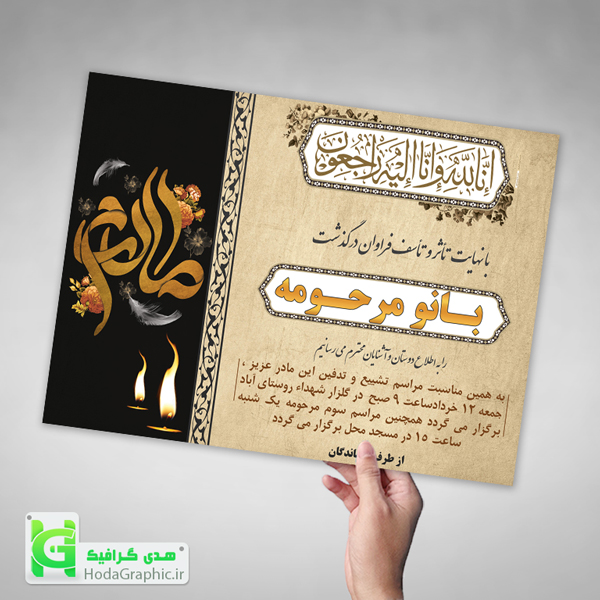 انا لله وانا الیه راجعون
با نهایت تاثر و تاسف فراوان درگذشت
بانو مرحومه
را به اطلاع دوستان و آشنایان محترم می رسانیم
به همین مناسبت مراسم تشییع و تدفین این مادر عزیز ،
جمعه ۱۲ خردادساعت ۹ صبح در گلزار شهداء روستای آباد
برگزار می گردد همچنین مراسم سوم مرحومه یک شنبه
ساعت ۱۵ در مسجد محل برگزار می گردد
از طرف
مادرم
هدی گرافیک
HodaGraphic.ir